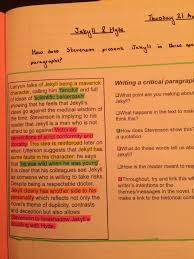 Thursday 21
Jekyll & Hyde
How does Stevenson present Jekyll in these
paragraphs?
Lanyon talks of Jekyll being a maverick
character, calling him 'fanciful' and full
of ideas of 'scientific balderdash'
showing that he feels that Jekyll's
ideas go against the medical wisdom of
the time. Stevenson is implying to his
reader that the man is a man who is not
afraid to go against Victorian
conventions of strict conformity and
morality. This idea is reinforced later on
when Utterson suggests that Jekyll has
some faults in his character; he says
that 'he was wild when he was young'
it is clear that his colleagues see Jekyll
as someone who is able to take risks.
Despite being a respectable doctor,
Jekyll clearly has another side to his
personality which reflects not only the
novel's theme of duplicity, contrasts
and deception but also allows
Stevenson to foreshadow Jekyll's
bonding with Hyde.
Writing a critical paragraph
What point are you making about
Jekyll?
What happens in the text to make
think this?
How does Stevenson show
a quotation?
How is the meaning
How does this
question?
How is the reader meant to
Throughout, try and link this
writer's intentions or the
themes/messages in the novel,
link to context.